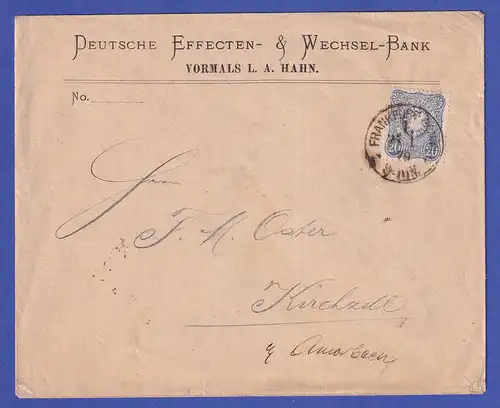 DEUTSCHE EFFECTEN- & WECHSEL-BANK
VORMALS L. A. HAHN.
No.
FRANKFURT
20 20
79
9-10N.
Herrn
F. M. Oster
Kirchzell
Amorbach